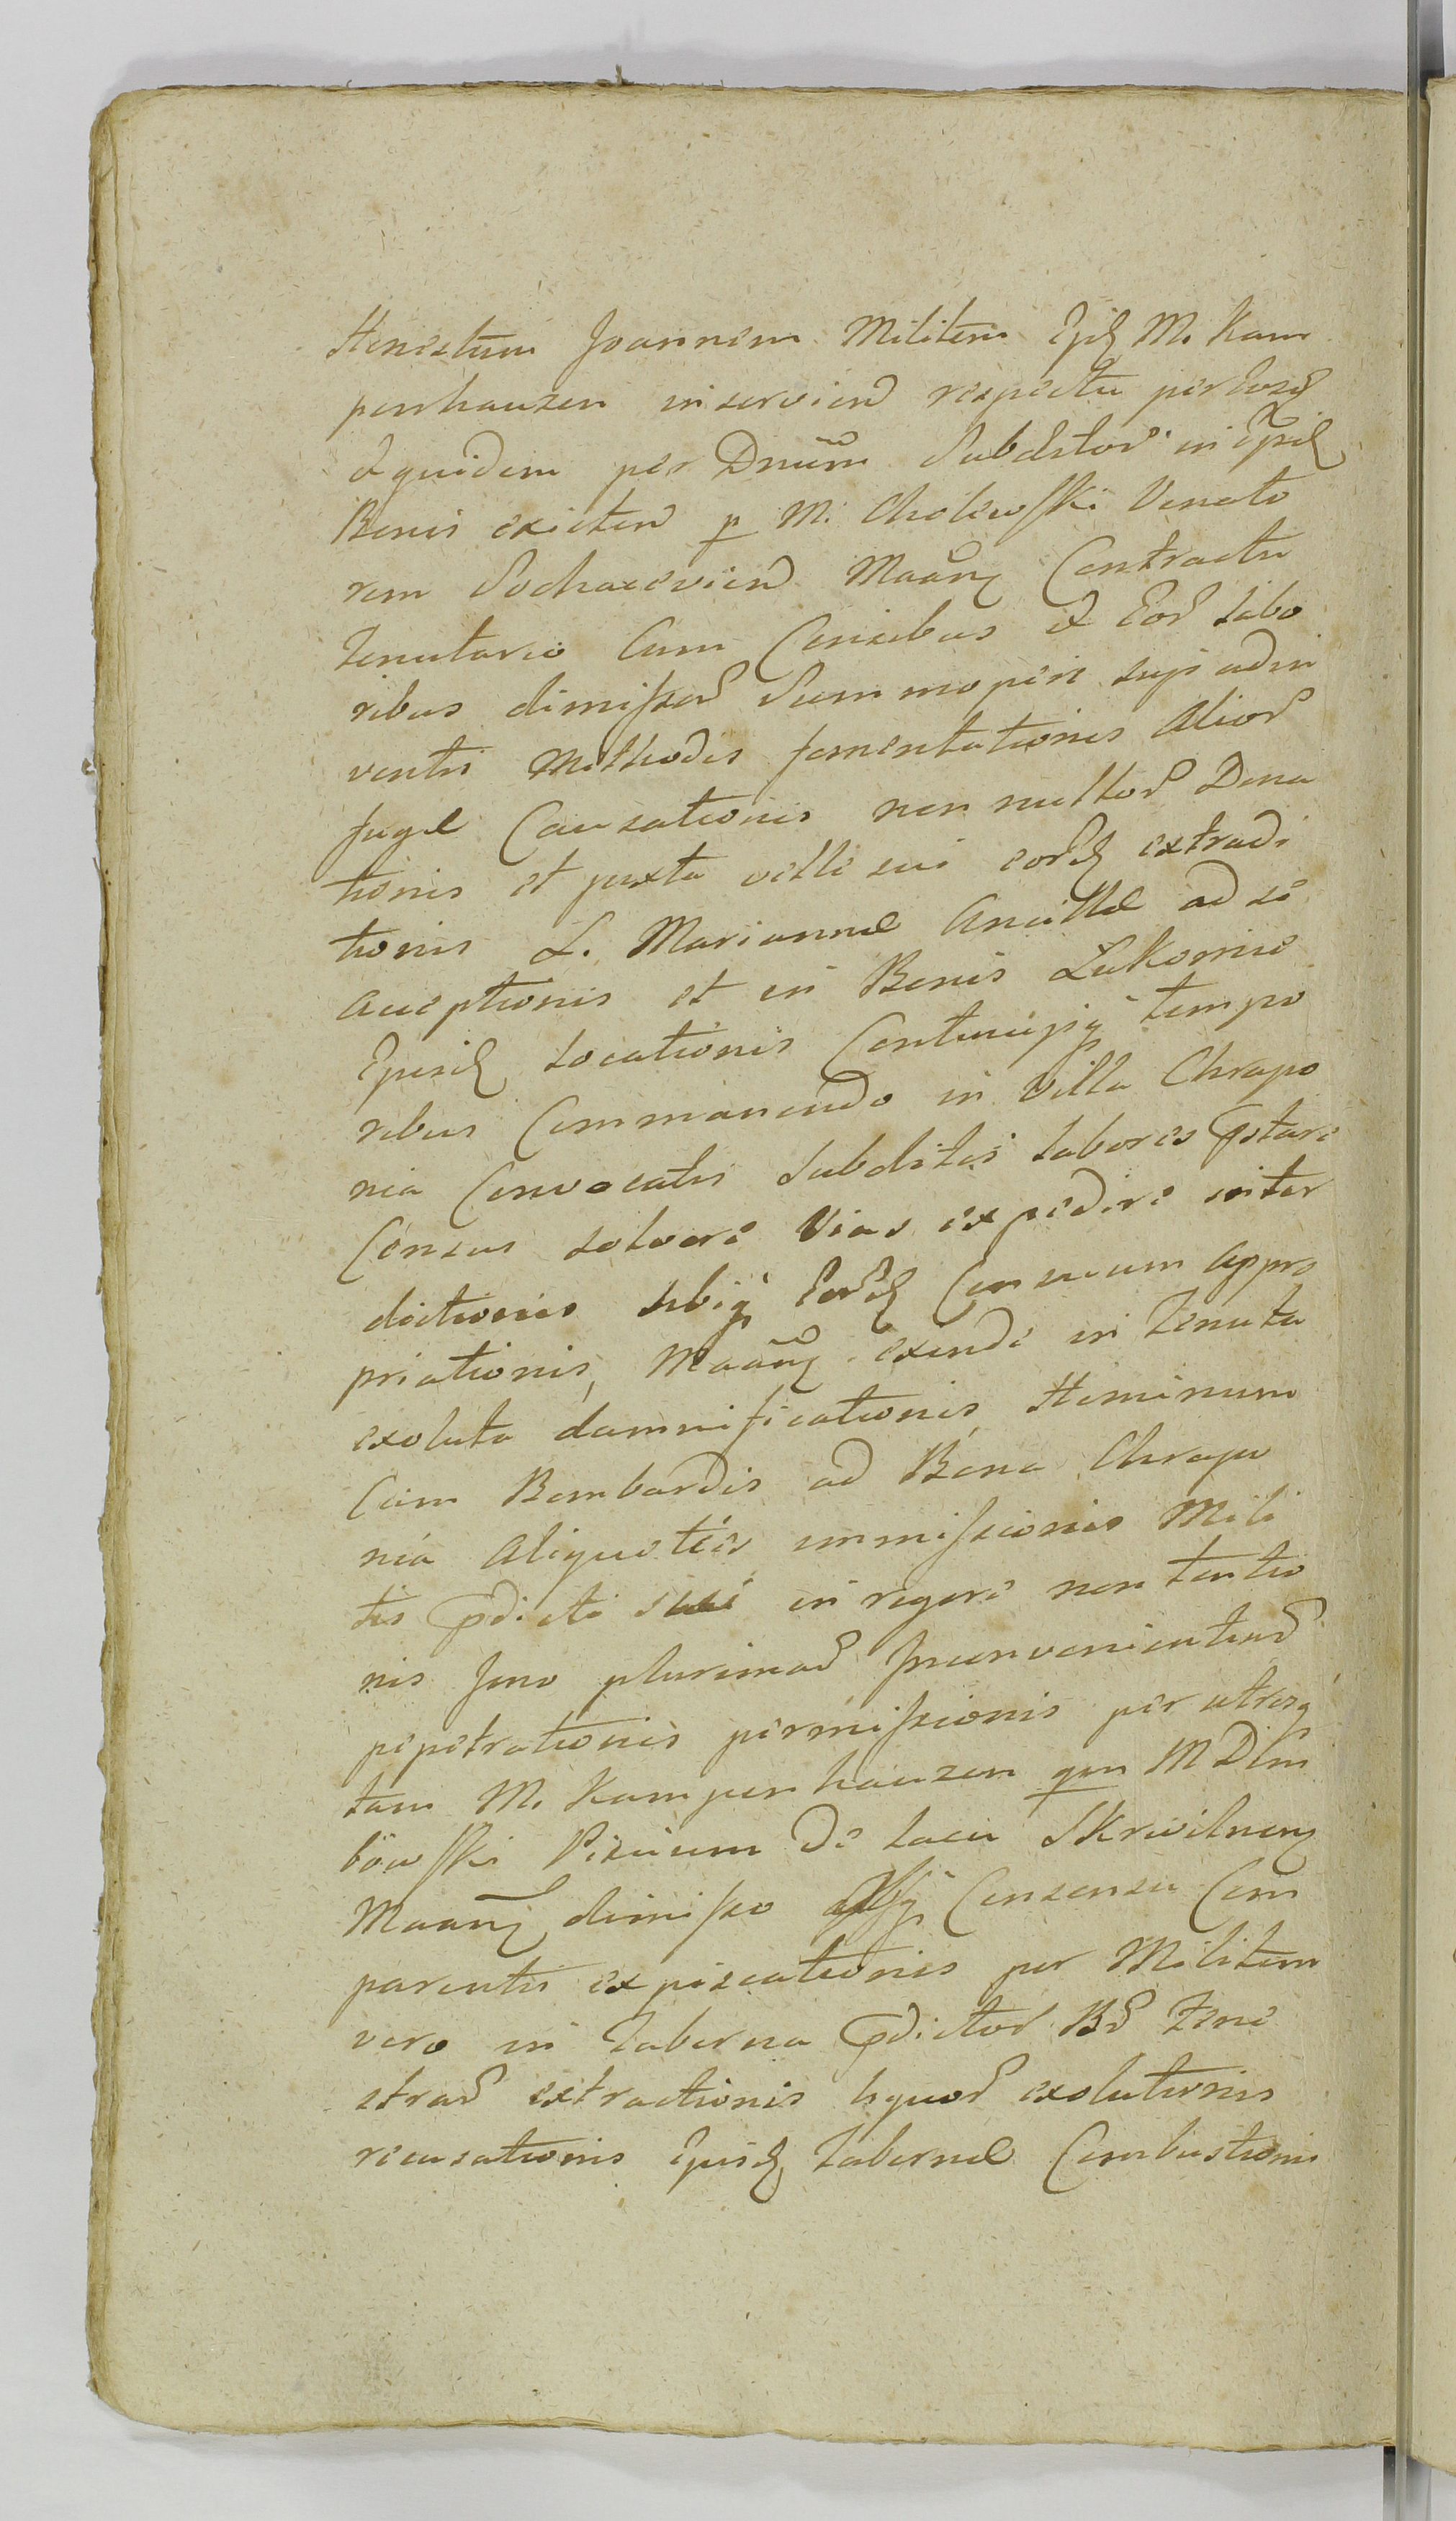 Honestum Joannem Militem Ejdȝ M. Kam
penhauzen inserviend respectu
& quidem per Dnum Subditor in
Bonis existen p M. Cholewski Venato
rem Sochacevien Maanȝ Contractu
Tenutario Cum Censibus et Eor labo
ribus dimissor Summoper adin
ventis Methodis fomentationis Alior
fugæ Causationis non nullor Dona
tionis et juxta velle sui eordȝ extradi
tionis L. Mariannæ Ancillæ ad se
acceptionis et in Bonis Łukomie
Ejusdȝ locationis tempo
ribus Commanendo in Villa Chrapo
nia Convocatis Subditis labores pstare
Census solvere Vias expedire inter
dictionis sibiq Eordȝ Censuum appro
priationis, Maanȝ exinde in Tenuta
exoluta damnificationis Hominum
Cum Bombardis ad Bona Chrapo
nia Aliquoties immissionis Mili
tis pdicti sui in rigore non tentio
nis Imo plurimar Inconvenientiar
pepetrationis permissionis per utrosq
tam M. Kampenhauzen qm M Dem
bowski Piscium De lacu Skrwilnenȝ
Maanȝ dimisso absq Consensu Com
parentis expiscationis per Militem
vero in Taberna pdictor Br Fene
strar extractionis liquor exolutionis
recusationis Ejusdȝ Tabernæ Combustionis